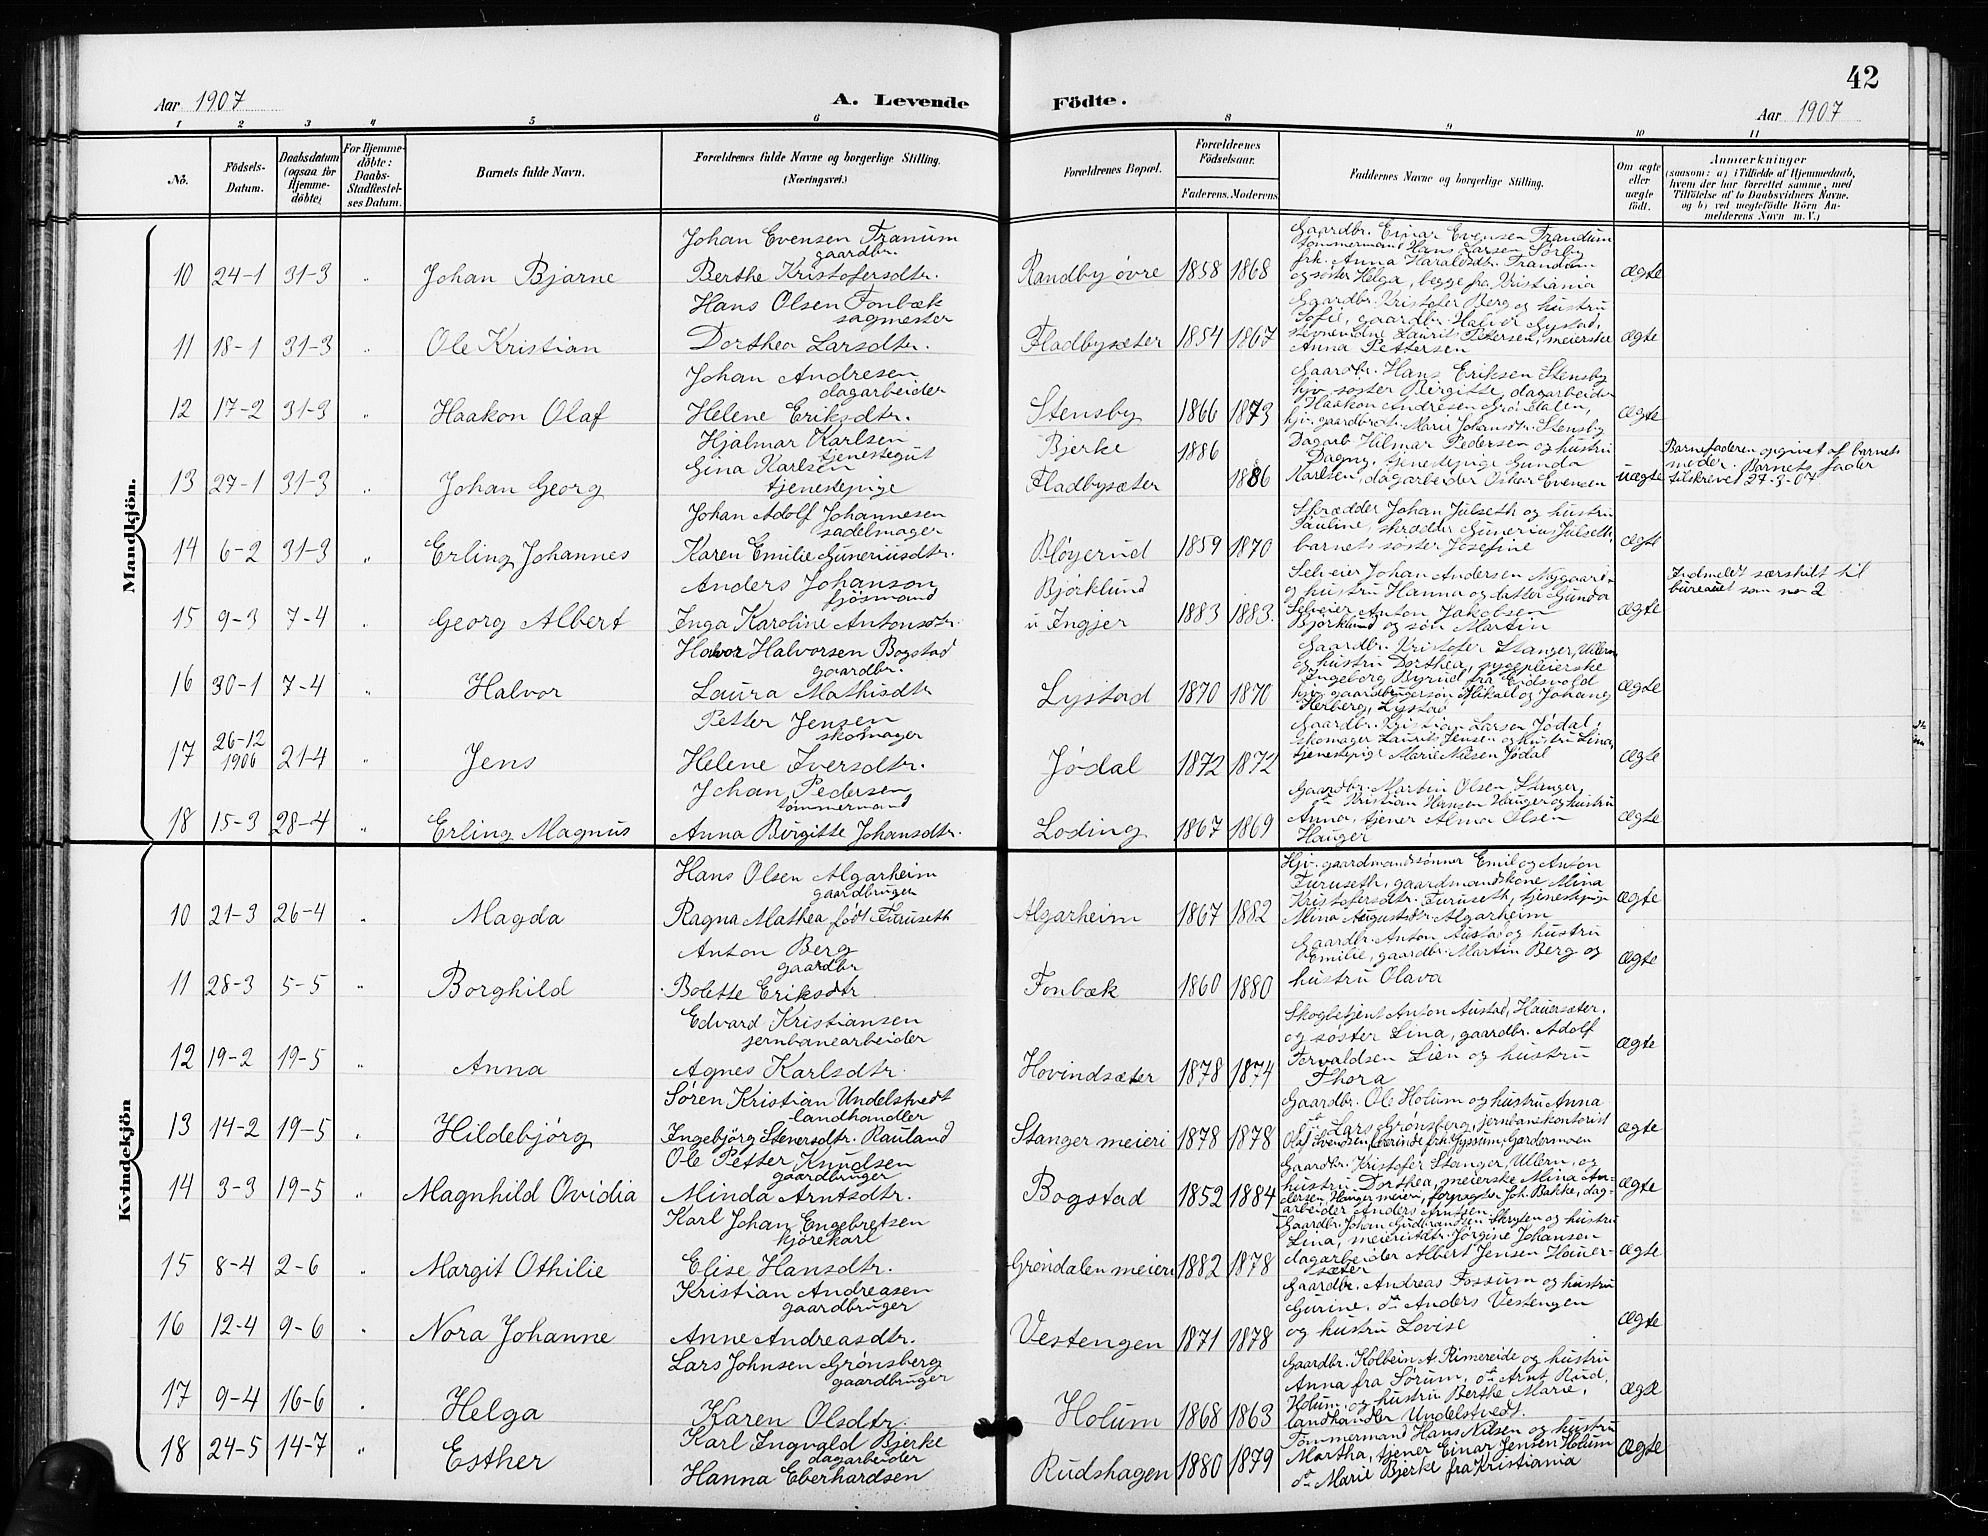 42
Aar 1907 A. Levende Födte. Aar 1907
1 2 3 4 5 6 8 9 10 11
No. Födsels-Datum. Daabsdatum (ogsaa for Hjemme-döbte) For Hjemme-döbte: Daabs-Stadfæstel-ses Datum. Barnets fulde Navn. Forældrenes fulde Navne og borgerlige Stilling. (Næringsvei.) Forældrenes Bopæl. Forældrenes Födselsaar. Faderens. Moderens. Faddernes Navne og borgerlige Stilling. Om ægte eller uægte födt. Anmærkninger (saasom: a) i Tilfælde af Hjemmedaab, hvem der har forrettet samme, med Tilföielse af to Daabsvidners Navne. og b) ved uægtefödte Börn An-melderens Navn m. V.)
Mandkjön.
Johan Evensen Tranum Gaardbr. Einar Evensen Trandum
gaardbr. Tømmermand Hans Larsen Sørby
10 24-1 31-3 " Johan Bjarne Berthe Kristofersdtr. Randby øvre 1858 1868 frk. Anna Haraldsdtr. Trandum ægte
og søster Helga, begge fra Kristiania
Hans Olsen Fonbæk Gaardbr. Kristofer Berg og hustru
sagmester Sofie, gaardbr. Halvor Nystad,
11 18-1 31-3 " Ole Kristian Dorthea Larsdtr. Fladbysæter 1854 1867 Laurits Pettersen, meierske ægte
Anna Pettersen
Johan Andresen Gaardbr. Hans Eriksen Stensby
dagarbeider hjv. søster Birgitte, dagarbeider
12 17-2 31-3 " Haakon Olaf Helene Eriksdtr. Stensby 1866 1873 Haakon Andresen Grøndalen, ægte
hjv. gaardbrdtr. Marie Johansdtr. Stensby
Hjalmar Karlsen Bjerke 1886 Dagarb. Hilmar Pedersen og hustru Barnefaderen opgivet af barnets
tjenestegut Dagny, tjenestepige Gunda moder. Barnets fader
13 27-1 31-3 Johan Georg Gina Karlsen Fladbysæter 1886 Karlsen, dagarbeider Oskar Evensen uægte tilskrevet 27-3-07
tjenestepige
Johan Adolf Johannesen Skrædder Johan Julseth og hustru
sadelmager Pauline, skrædder Gunerius Julseth,
14 6-2 31-3 " Erling Johannes Karen Emilie Guneriusdtr. Bløyerud 1859 1870 barnets søster Josefine ægte
Anders Johanson Bjørklund Selveier Johan Andersen Nygaard Indmeldt særskilt til
fjøsmand og hustru Hanna og datter Gunda bureauet som no 2
15 9-3 7-4 " Georg Albert Inga Karoline Antonsdtr. u Ingjer 1883 1883. Selveier Anton Jakobsen ægte
Bjørklund og søn Martin
Halvor Halvorsen Bogstad Gaardbr. Kristofer Stanger, Ullern
gaardbr. og hustru Dorthea, sygepleierske
16 30-1 7-4 " Halvor Laura Mathisdtr Lystad 1870 1870 Ingeborg Byrud fra Eidsvold ægte
hjv. gaardbrugersøn Mikael og Johan
Herberg, Lystad
Petter Jensen Gaardbr. Kristian Larsen Jødal,
skomager skomager Laurits Jensen og hustru Lina,
17 26-12 1906 21-4 " Jens Helene Iversdtr. Jødal 1872 1872 tjenestepige Marie Nilsen Jødal ægte
Johan Pedersen Gaardbr. Martin Olsen Stanger,
tømmermand do Kristian Hansen Hauger og hustru
18 15-3 28-4 " Erling Magnus Anna Birgitte Johansdtr. Loding 1867 1869 Anna, tjener Alma Olsen ægte
Hauger
Kvindekjön
Hans Olsen Algarheim Hjv. gaardmandsønner Emil og Anton
gaardbruger Furuseth, gaardmandskone Mina
10 21-3 26-4 " Magda Ragna Mathea født Furuseth Algarheim 1867 1882 Kristofersdtr. Furuseth, tjenestepige ægte
Mina Augustsdtr. Algarheim
Anton Berg Gaardbr. Anton Austad og hustru
gaardbr Emilie, gaardbr. Martin Berg og
11 28-3 5-5 " Borghild Bolette Eriksdtr Fonbæk 1860 1880 hustru Olava ægte
Edvard Kristiansen Skogbetjent Anton Austad, Hauersæter,
jernbanearbeider og søster Lina, gaardbr. Adolf
12 19-2 19-5 " Anna Agnes Karlsdtr. Hovindsæter 1878 1874 Torvaldsen Lien og hustru ægte
Thora
Søren Kristian Undelstvedt Gaardbr. Ole Holum og hustru Anna
landhandler do Lars Grønsberg, jernbanekontorist
13 14-2 19-5 " Hildebjørg Ingebjörg Stenersdtr. Rauland Stanger meieri 1878 1878 Olaf Svendsen, Gardermoen ægte
Ole Petter Knudsen Gaardbr. Kristofer Stanger, Ullern, og
gaardbruger hustru Dorthea, meierske Mina An-
14 3-3 19-5 " Magnhild Ovidia Minda Arntsdtr. Bogstad 1852 1884 dersen, Stanger meieri, forpagter Joh. Bakke, dag- ægte
arbeider Anders Arntsen.
Karl Johan Engebretsen Gaardbr. Johan Gudbrandsen Skryten og hustru
kjørekarl Lina, Jørgine Johansen
15 8-4 2-6 " Margit Othilie Elise Hansdtr. Grøndalen meieri 1882 1878 dagarbeider Albert Jensen Hauer- ægte
sæter
Kristian Andreasen Gaardbr. Andreas Fossum og hustru
gaardbruger Gurine, do Anders Vestengen
16 12-4 9-6 " Nora Johanne Anne Andreasdtr. Vestengen 1871 1878 og hustru Lovise ægte
Lars Johnsen Grønsberg Gaardbr. Kolbein A. Rimereide og hustru
gaardbruger Anna fra Sørum, do Arnt Rud,
17 9-4 16-6 " Helga Karen Olsdtr. Holum 1868 1863 Holum, og hustru Berthe Marie, ægte
landhandler Undelstvedt.
Karl Ingvald Bjerke Tømmermand Hans Nilsen og hustru
dagarbeider Martha, tjener Einar Jensen Holum
18 24-5 14-7 " Esther Hanna Eberhardsen Rudshagen 1880 1879 do Marie Bjerke fra Kristiania ægte